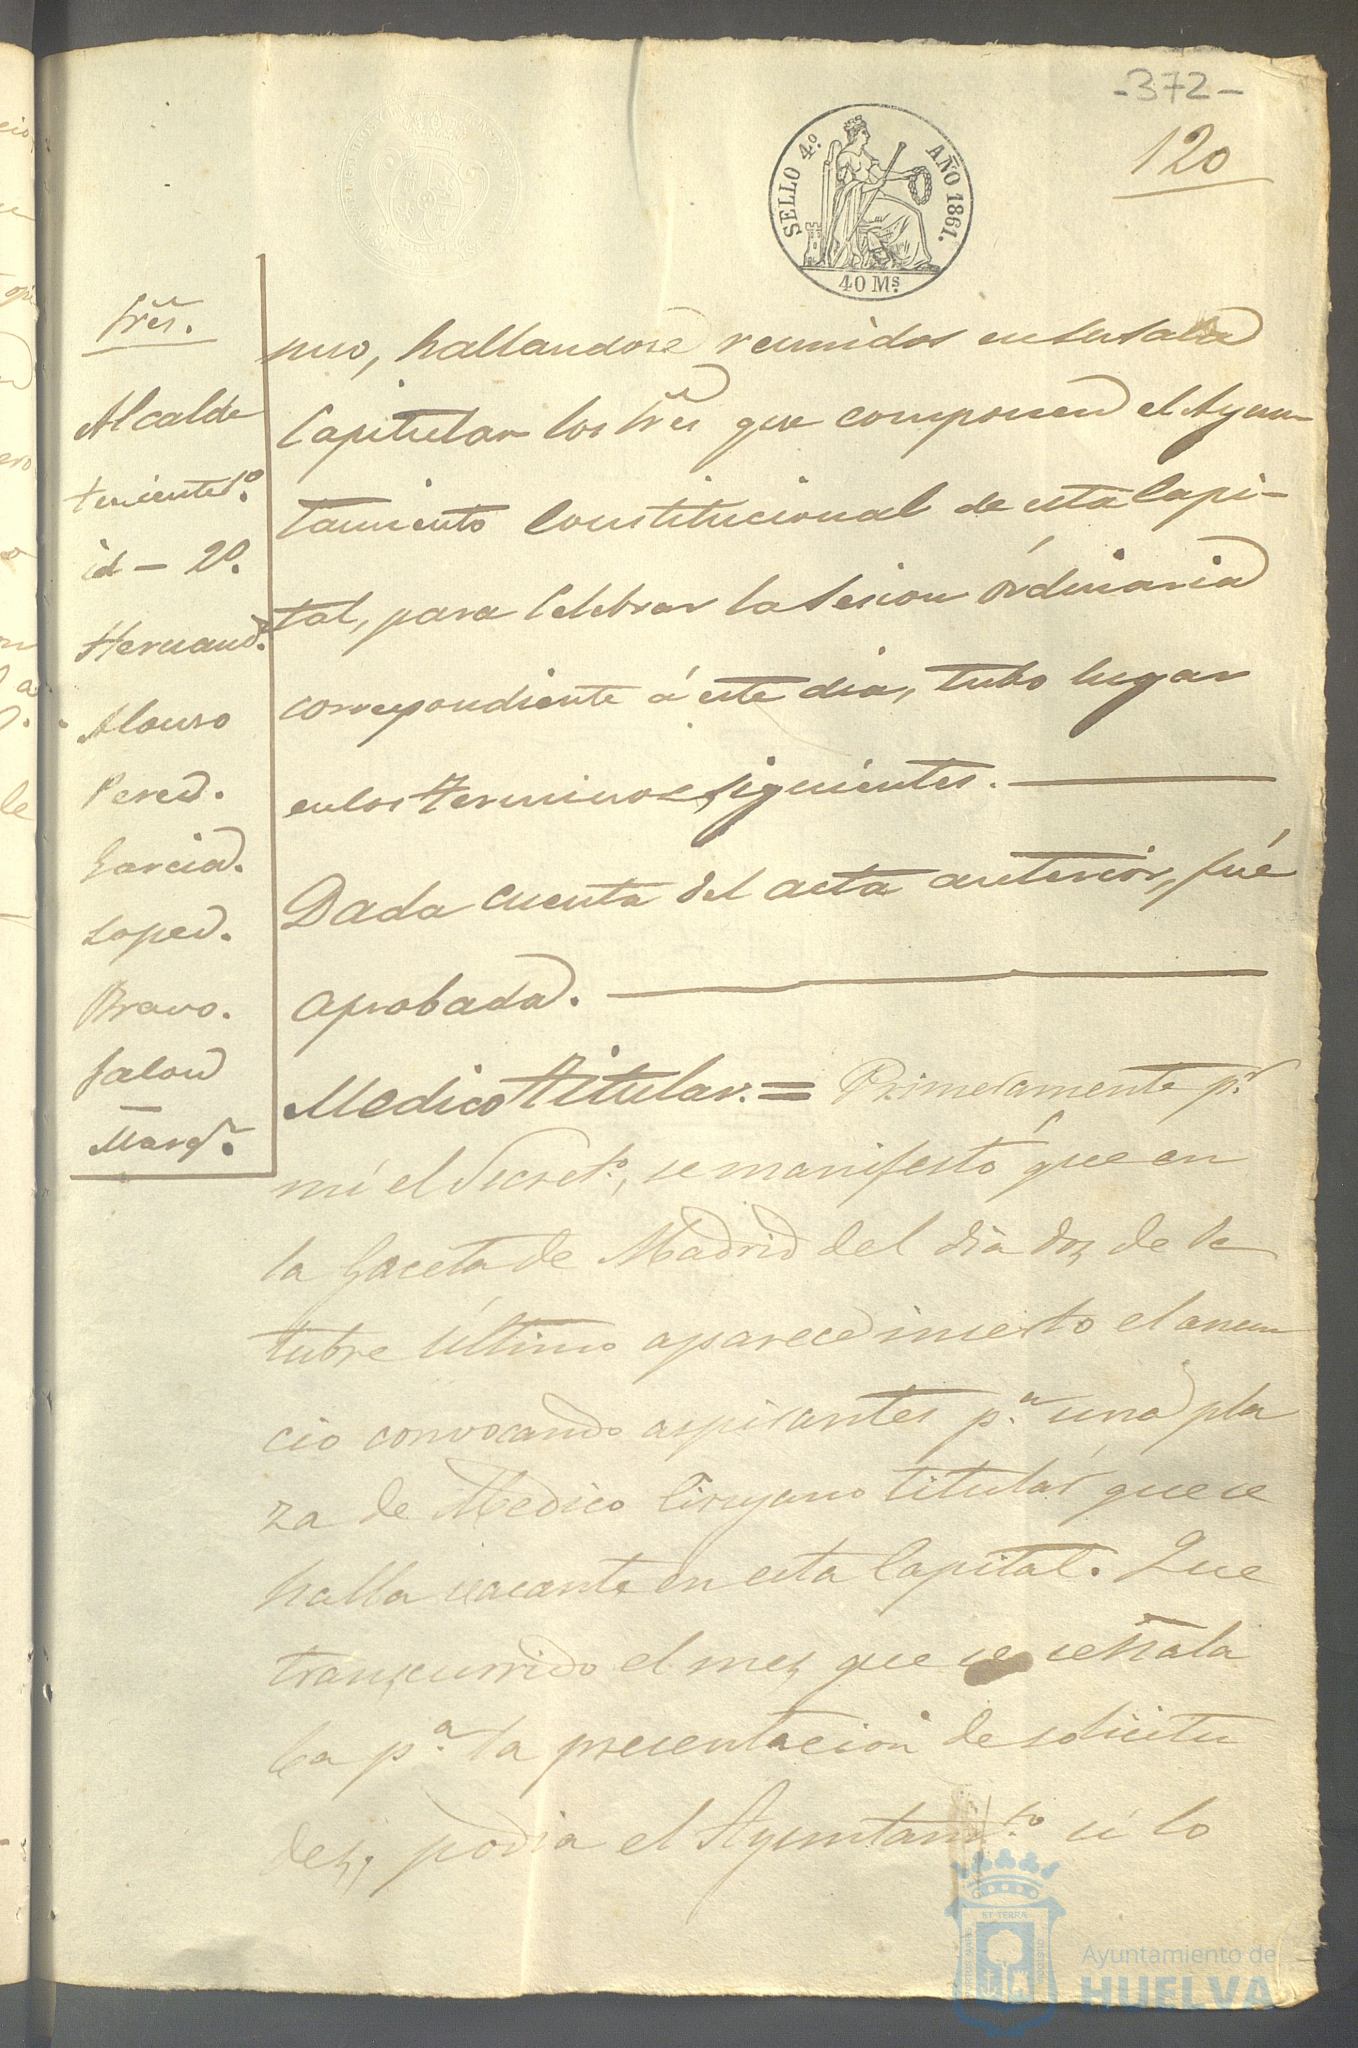 -372-
120
SELLO 4.º AÑO 1861.
40 Ms.
Sres.
Alcalde
teniente 1º.
id - 2º.
Hernand.
Alonso
Pered.
Garcia.
Loped.
Bravo.
Jalon
Marqz.
nuo, hallandose reunidos en su sala
Capitular los Sres que componen el Ayun-
tamiento Constitucional de esta Capi-
tal, para Celebrar la Sesion órdinaria
correspondiente á este dia, tubo lugar
en los terminos siguientes.
Dada cuenta del acta anterior, fué
aprobada.
Medico titular. = Primeramente pr.
mi el Secreto., se manifestó que en
la Gaceta de Madrid del dia dos de Oc
tubre último aparece inserto el anun
cio convocando aspirantes pa. una pla
za de Medico Cirujano titular que se
halla vacante en esta Capital. Que
transcurrido el mes que se señala
ba pa. la presentacion de solicitu
des, podia el Ayuntamto. si lo
ET TERRA
Ayuntamiento de
HUELVA